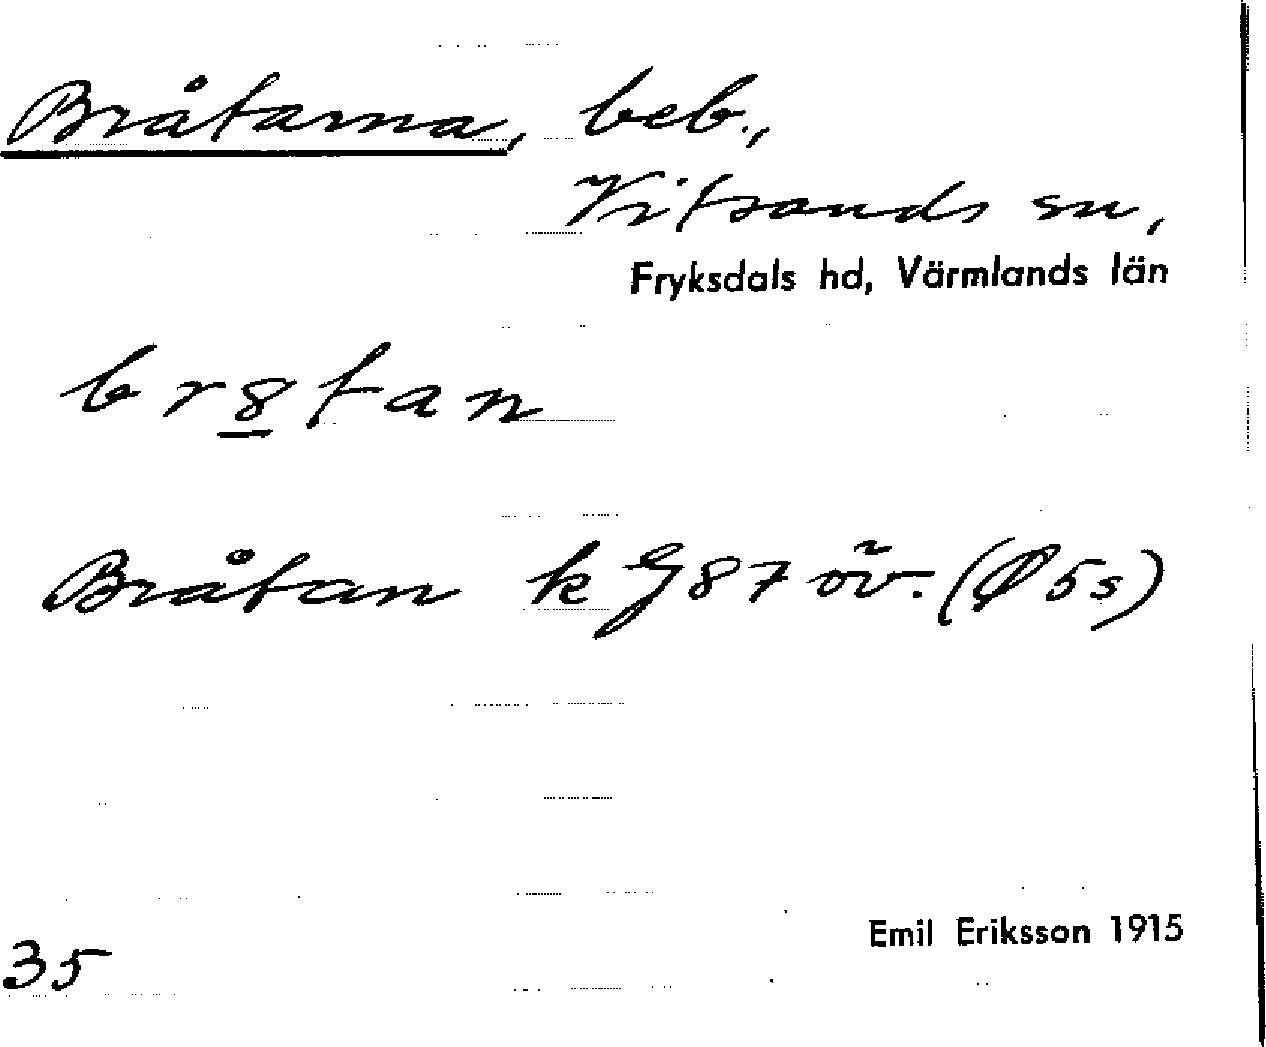 Bråtarna, beb.,
Vitsands sn,
Fryksdals hd, Värmlands län
br8tan
Bråtan k G 87 öv. (Ø 5s)
Emil Eriksson 1915
35